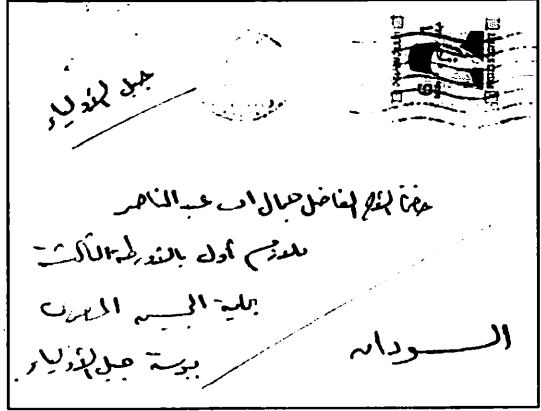 جبل الأولياء
حضرة الأخ الفاضل جمال افـ عبد الناصر
ملازم أول بالأورطة الثالثة
بكلية الجيش المصرى
بوستة جبل الأولياء
الســودان